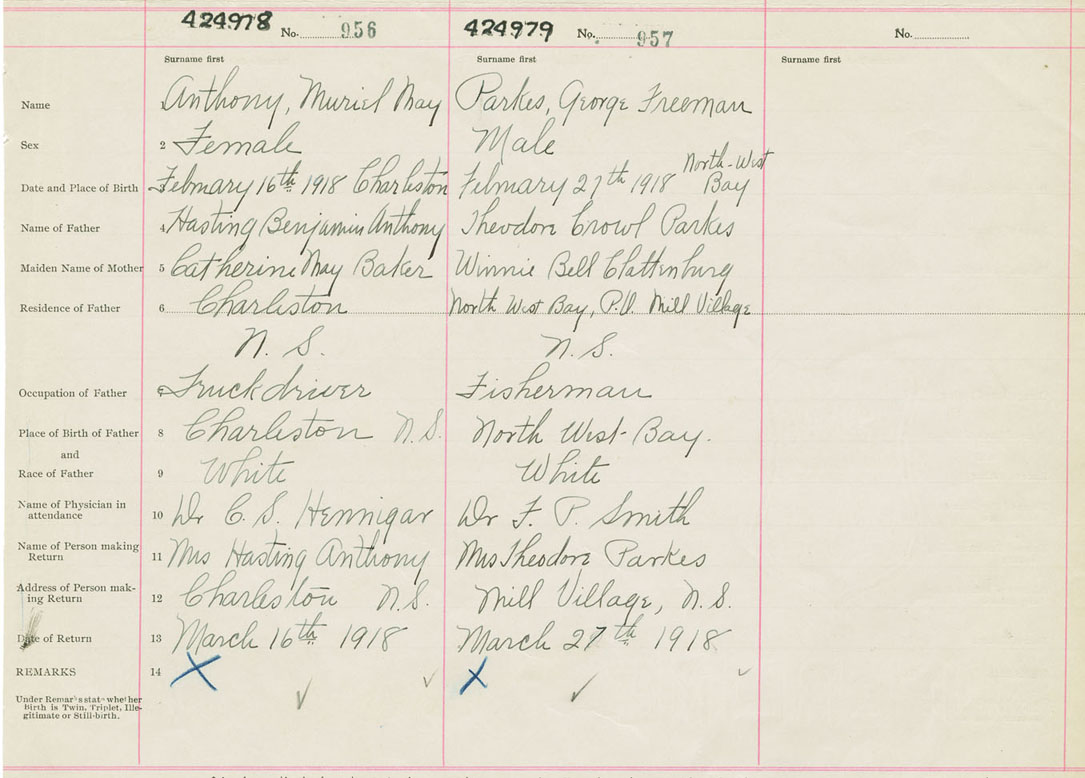 424978 No. 956 424979 No. 957 No.
Surname first Surname first Surname first
Name Anthony, Muriel May Parkes, George Freeman
Sex 2 Female Male
Date and Place of Birth February 16th 1918 Charleston February 27th 1918 North-West Bay
Name of Father 4 Hasting Benjamin Anthony Theodore Crowl Parkes
Maiden Name of Mother 5 Catherine May Baker Winnie Bell Clattenburg
Residence of Father 6 Charleston North West Bay, P.O. Mill Village
N. S. N. S.
Occupation of Father Truckdriver Fisherman
Place of Birth of Father 8 Charleston N.S. North West-Bay.
and
Race of Father 9 White White
Name of Physician in
attendance 10 Dr C. S. Hennigar Dr F. P. Smith
Name of Person making
Return 11 Mrs Hasting Anthony Mrs Theodore Parkes
Address of Person mak-
ing Return 12 Charleston N.S. Mill Village, N.S.
Date of Return 13 March 16th 1918 March 27th 1918
REMARKS 14 X X
Under Remarks state whether
Birth is Twin, Triplet, Ille-
gitimate or Still-birth.